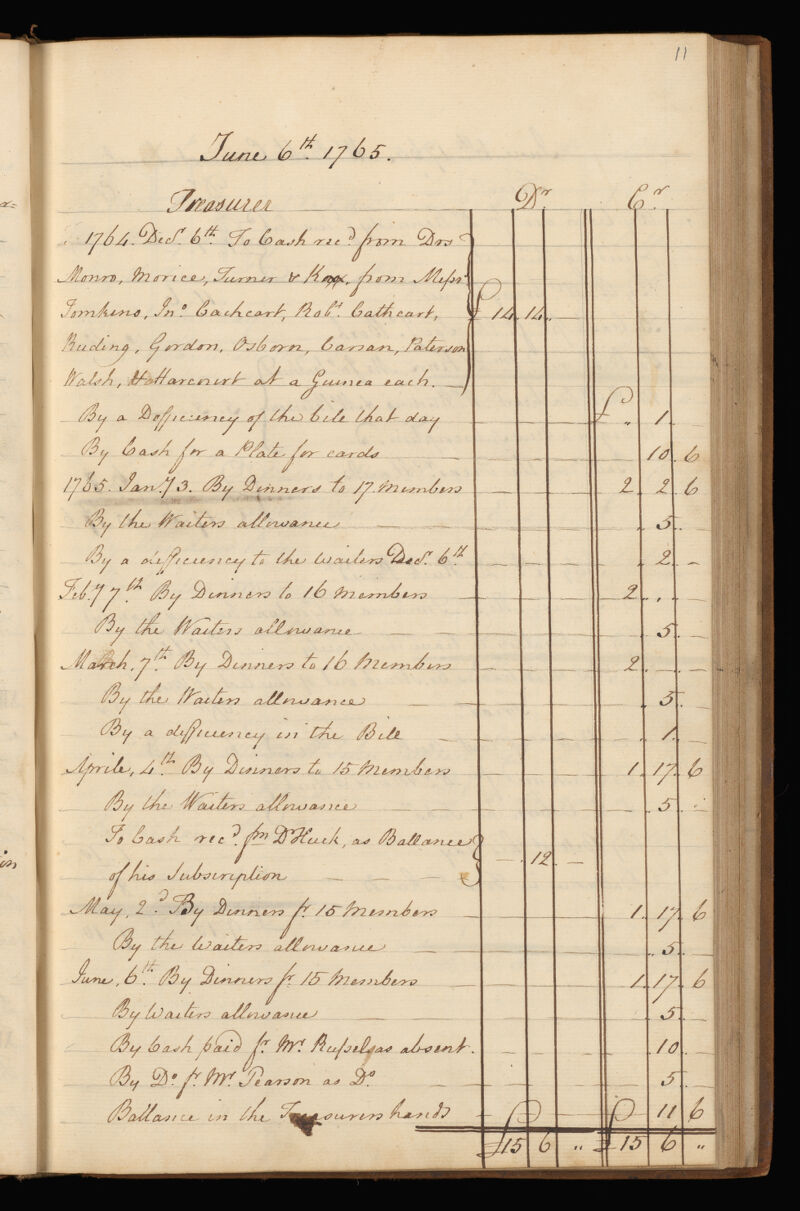 11
June 6th. 1765.
Treasurer Dr Cr
1764. Decr. 6th. To Cash recd from Drs
Monro, Morice, Turner & Knox, from Messrs
Tomkins, Jno. Cathcart, Robt. Cathcart, £ 14. 14. —
Ruding, Gordon, Osborn, Carsan, Paterson
Walsh, & Harcourt at a Guinea each.
By a Defficiency of the bile that day £ „ 1. —
By Cash for a Plate for cards — 10. 6
1765. Jany 3. By Dinners to 17 members — 2. 2. 6
By the Waiters allowance — 5. —
By a defficiency to the waiters Decr. 6th — 2. —
Feby 7th. By Dinners to 16 members — 2. „ . —
By the Waiters allowance — 5. —
March. 7th. By Dinners to 16 members — 2. — . —
By the Waiters allowance — 5. —
By a defficiency in the Bill — 1. —
Aprile, 4th. By Dinners to 15 members — 1. 17. 6
By the Waiters allowance — 5. —
To Cash recd. fm Dr Huck, as Ballance
of his Subscription — 12. —
May, 2d. By Dinners fr 15 Members — 1. 17. 6
By the waiters allowance — 5. —
June, 6th. By Dinners fr 15 Members — 1. 17. 6
By waiters allowance — 5. —
By Cash paid fr. Mr. Russel as absent. — 10. —
By Do. fr Mr. Pearson as Do. — 5. —
Ballance in the Treasurers hands — 11. 6
£15 6 „ £15 6 „